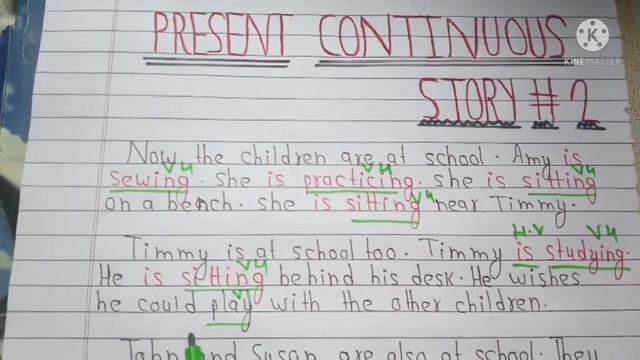 PRESENT CONTINUOUS
KINEMASTER
STORY # 2
Now the children are at school. Amy is
V4 V4 V4
sewing. She is practicing. she is sitting
V4
on a bench. she is sitting near Timmy.
H.V V4
Timmy is at school too. Timmy is studying.
V4
He is sitting behind his desk. He wishes
V1
he could play with the other children.
John and Susan are also at school. They